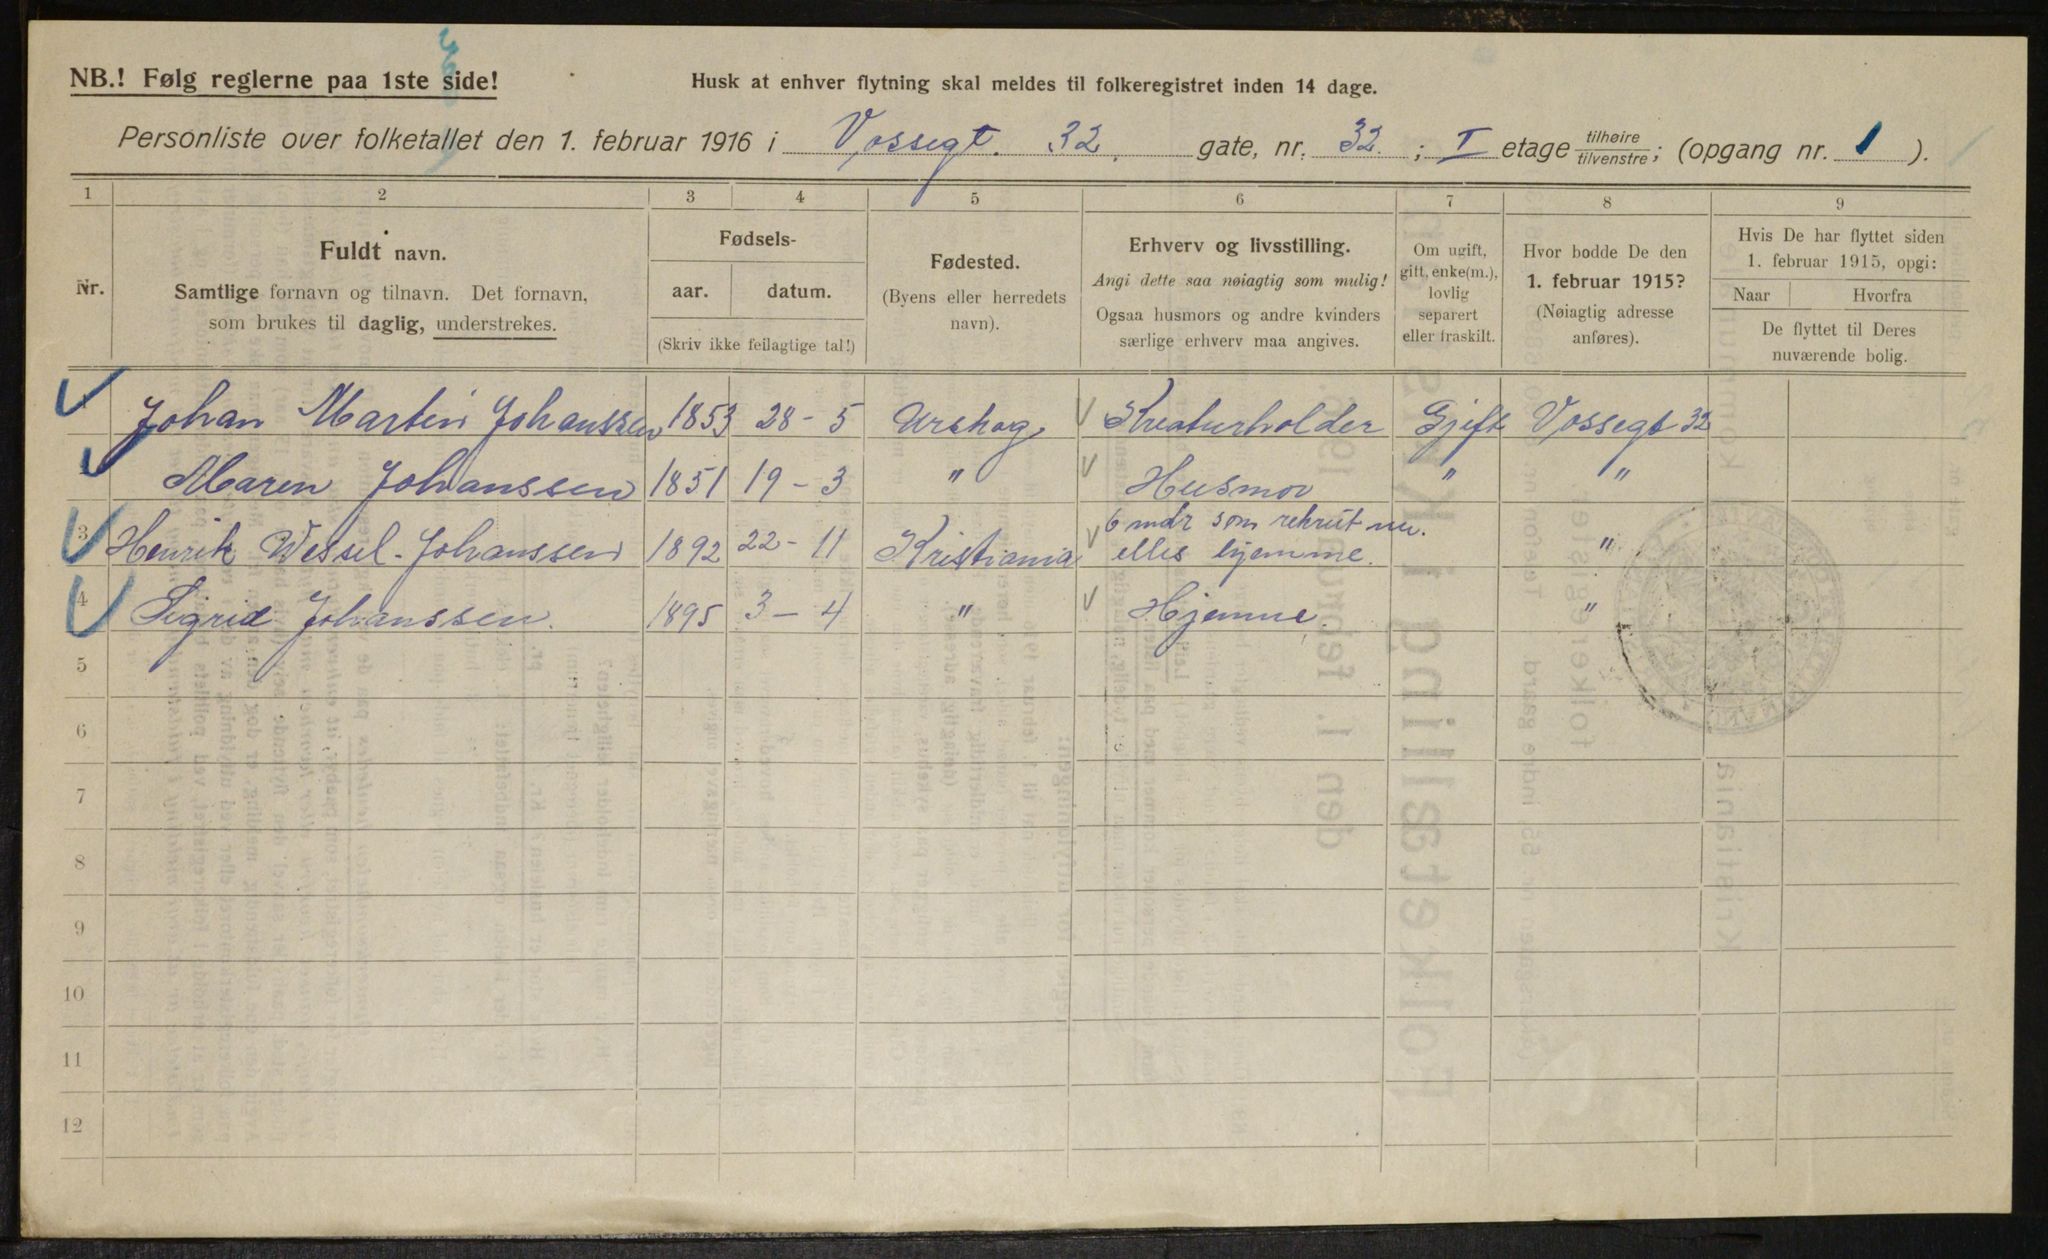 NB.! Følg reglerne paa 1ste side!
Husk at enhver flytning skal meldes til folkeregistret inden 14 dage.
Personliste over folketallet den 1. februar 1916 i Vossegt. 32, gate, nr. 32. ; I etage tilhøire tilvenstre; (opgang nr. 1 ).
1 2 3 4 5 6 7 8 9
Nr.
Fuldt navn.
Samtlige fornavn og tilnavn. Det fornavn,
som brukes til daglig, understrekes.
Fødsels-
aar. datum.
(Skriv ikke feilagtige tal!)
Fødested.
(Byens eller herredets
navn).
Erhverv og livsstilling.
Angi dette saa nøiagtig som mulig!
Ogsaa husmors og andre kvinders
særlige erhverv maa angives.
Om ugift,
gift, enke(m.),
lovlig
separert
eller fraskilt.
Hvor bodde De den
1. februar 1915?
(Nøiagtig adresse
anføres).
Hvis De har flyttet siden
1. februar 1915, opgi:
Naar Hvorfra
De flyttet til Deres
nuværende bolig.
Johan Martin Johanssen 1853 28-5 Urskog Kreaturholder Gift Vossegt 32
Maren Johanssen 1851 19-3 " Husmor " "
3 Henrik Wessel-Johanssen 1892 22-11 Kristiania 6 mdr som rekrut nu.
elles hjemme. "
4 Sigrid Johanssen. 1895 3-4 " Hjemme. "
5
6
7
8
9
10
11
12